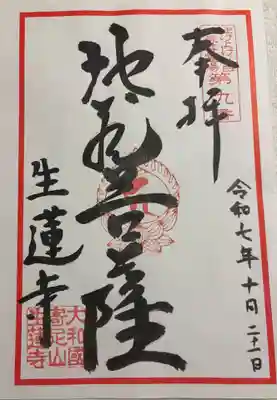 奉拝
令和七年十月二十一日
地蔵菩薩
生蓮寺
大和國
寄足山
生蓮寺